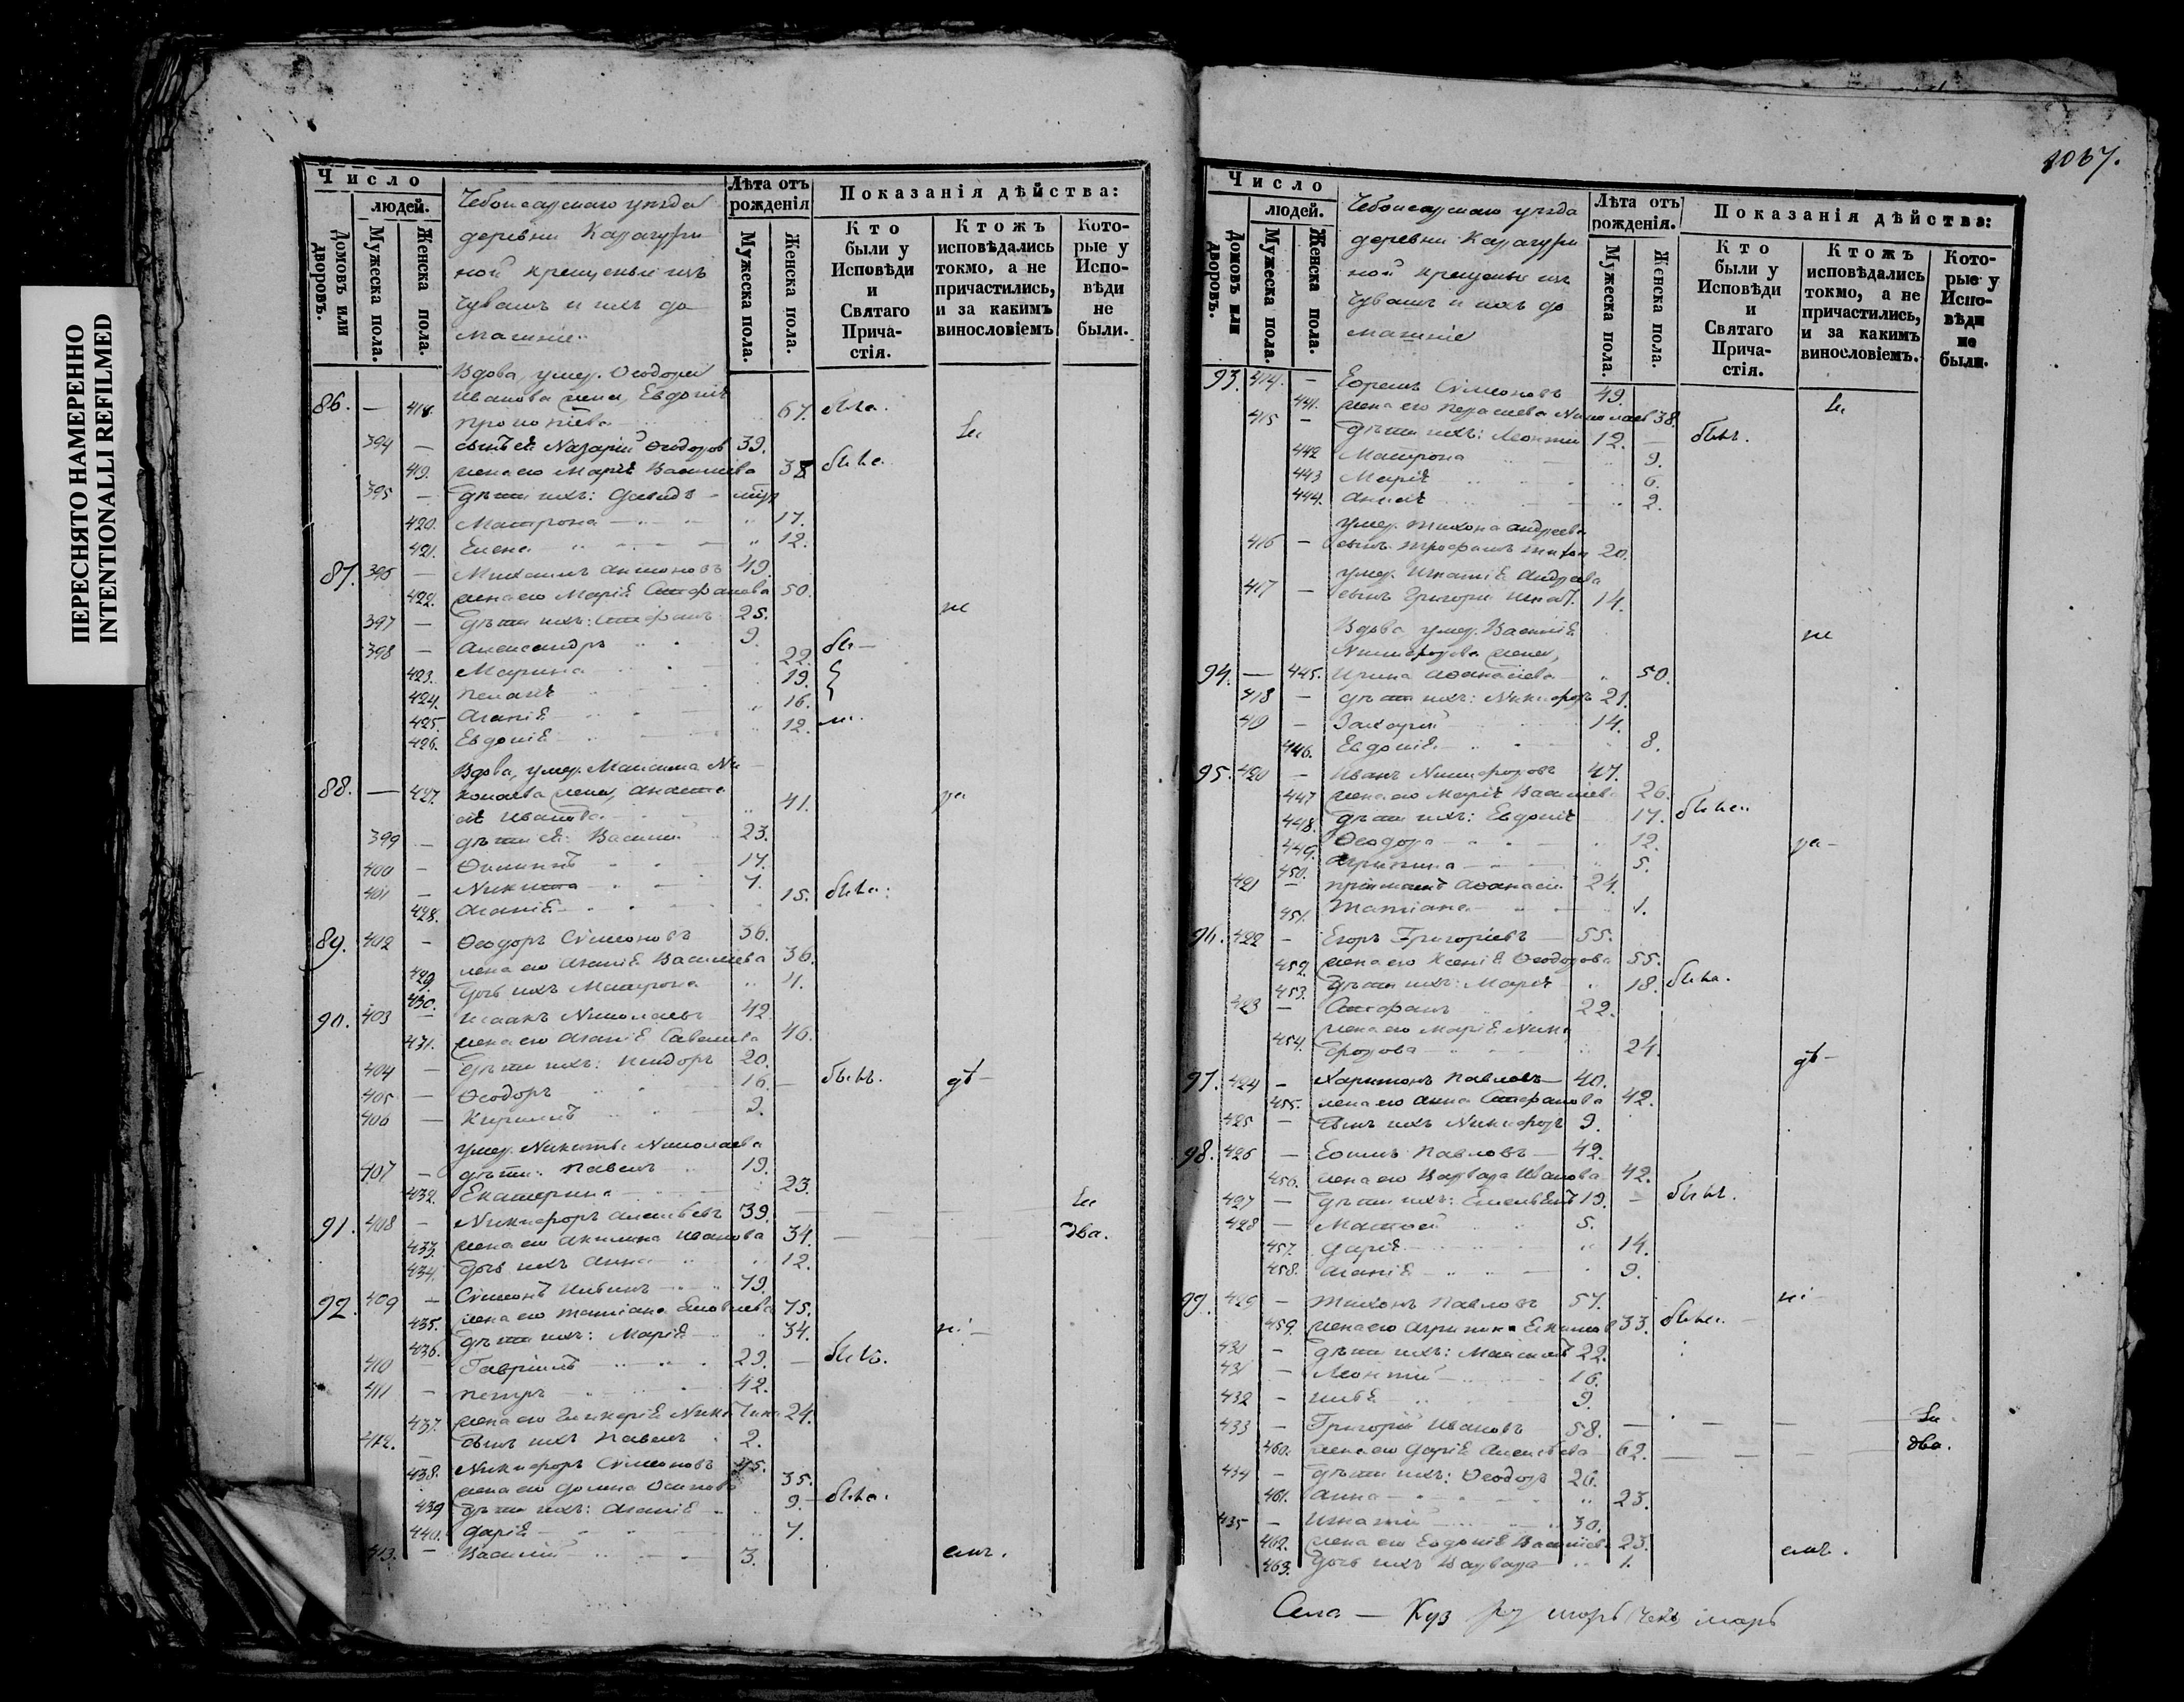 ПЕРЕСНЯТО НАМЕРЕННО
INTENTIONALLI REFILMED
Число
людей.
Домовъ или дворовъ.
Мужеска пола.
Женска пола.
Чебоксарскаго уѣзда
деревни Карачури
ной крещеные изъ
Чувашъ и ихъ до
машніе.
Лѣта отъ рожденія
Мужеска пола.
Женска пола.
Показанія дѣйства:
Кто были у Исповѣди и Святаго Причастія.
Ктожъ исповѣдались токмо, а не причастились, и за какимъ винословіемъ
Которые у Исповѣди не были.
Вдова, умер. Ѳеодора
86. — 418. Иванова жена, Евдокія
67. была.
394 — сынъ ея Назарій Ѳеодоров 39.
419. жена его Марія Василіева 38
395 — дѣти ихъ: Давидъ —
420. Матрона — 17.
421. Елена 12.
87. 396 — Михаилъ Антоновъ 49.
422. жена его Марія Стефанова 50.
не
397 — дѣти ихъ: Стефанъ 25.
398 — Александръ 9.
423. Марина 22.
424. 19.
425. Агапія 16.
426. Евдокія 12.
Вдова, умер. Максима Ни
88. — 427. колаева жена, Анаста
сія Иванова 41.
399 — дѣти ея: Василій 23.
400 — Филиппъ 17.
401 — Никита 7.
428. Агапія 15. была:
89. 402 — Ѳеодоръ Симоновъ 36.
429. жена его Агапія Василіева 36.
430. дочь ихъ Матрона 4.
90. 403 — Исаакъ Николаевъ 42.
431. жена его Агапія Савельева 46.
404 — дѣти ихъ: Исидоръ 20.
405 — Ѳеодоръ 16. — былъ. дѣ—
406 — Кириллъ 9.
умер. Никиты Николаева
407 — дѣти: Павелъ 19.
432. Екатерина 23.
91. 408 — Никифоръ Алексѣевъ 39.
433. жена его Акилина Иванова 34. два.
434. дочь ихъ Анна 12.
92. 409 — Симонъ 79.
435. жена его Татіана 75.
436. дѣти ихъ: Марія 34.
410 Гавріилъ 29. —
411 — Петръ 42.
437. жена его Гликерія 24.
412. — сынъ ихъ Павелъ 2.
Никифоръ Симоновъ 45.
438. жена его Домна Осипова 35.
439 дѣти ихъ: Агапія 9. — была.
440. Дарія 7.
413. — Василій 3.
1037.
Число
людей.
Домовъ или дворовъ.
Мужеска пола.
Женска пола.
Чебоксарскаго уѣзда
деревни Карачури
ной крещеные изъ
Чувашъ и ихъ до
машніе
Лѣта отъ рожденія.
Мужеска пола.
Женска пола.
Показанія дѣйства:
Кто были у Исповѣди и Святаго Причастія.
Ктожъ исповѣдались токмо, а не причастились, и за какимъ винословіемъ.
Которые у Исповѣди не были.
93. 414. — Ефремъ Симоновъ 49.
441. жена его Параскева Николаев 38.
415 — дѣти ихъ: Леонтій 12. — былъ.
442 Матрона 9.
443 Марія 6.
444. Анна 2.
умер. Тихона Андреева
416 — сынъ Трофимъ Тихон 20.
умер. Игнатія Андреева
417 — сынъ Григорій Игнат. 14.
Вдова умер. Василія
не
Никифорова жена,
94. — 445. Ирина Аѳанасіева 50.
418 — дѣти ихъ: Никифоръ 21.
419 — Захарій 14.
446. Евдокія 8.
95. 420 — Иванъ Никифоровъ 47.
447 жена его Марія Василіева 26.
448. дѣти ихъ: Евдокія 17.
449. Ѳеодора 12. ра—
450. Агрипина 5.
421 — Аѳанасій 24.
451. Татіана 1.
96. 422 — Егоръ Григоріевъ — 55.
452. жена его Ксенія Ѳеодорова 55.
453. дѣти ихъ: Марія 18. была.
423 — Стефанъ 22.
жена его Марія Ники
454. форова 24.
дѣ—
97. 424 — Харитонъ Павловъ — 40.
455. жена его Анна Стефанова 42.
425 — сынъ ихъ Никифоръ 9.
98. 426 — Павловъ — 42.
456. жена его Варвара Иванова 42.
427 — дѣти ихъ: 19. — былъ.
428 — Матѳей 5.
457. Дарія 14.
458. Агапія 9.
99. 429 — Тихонъ Павловъ 57.
459. жена его Агрипина 33.
430 — дѣти ихъ: Максимъ 22.
431 — Леонтій 16.
432 — 9.
433 — Григорій Ивановъ 58.
460. жена его Дарія Алексѣева 62. два.
434 — дѣти ихъ: Ѳеодоръ 26.
461. Анна 23.
435 — Игнатій 30.
462. жена его Евдокія Василіев 23.
463. дочь ихъ Варвара 1.
Села — Куз